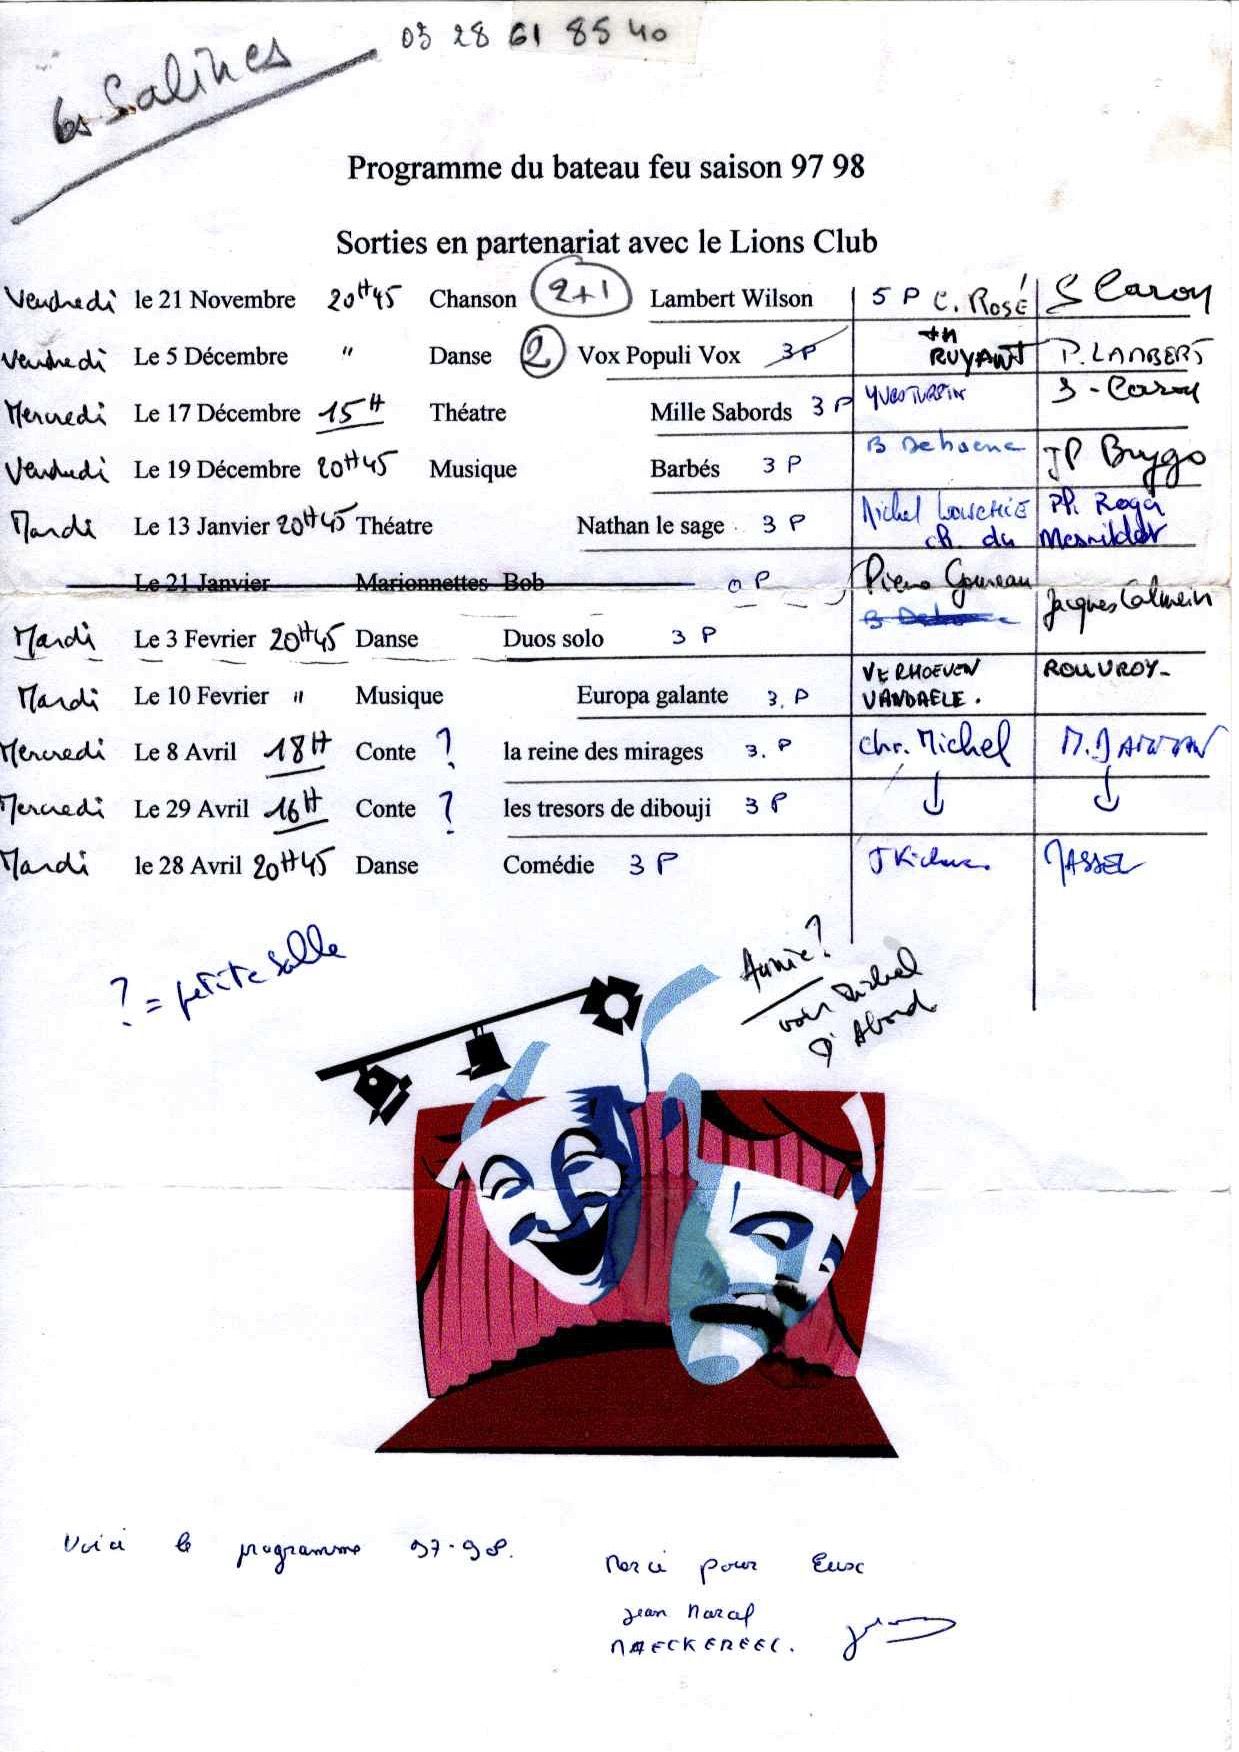 les Salines
03 28 61 85 40
Programme du bateau feu saison 97 98
Sorties en partenariat avec le Lions Club
Vendredi le 21 Novembre 20H45 Chanson 2+1 Lambert Wilson 5 P C. Rosé S Caroy
Vendredi Le 5 Décembre " Danse 2 Vox Populi Vox 3P RUYANT P. LAMBERT
Mercredi Le 17 Décembre 15H Théatre Mille Sabords 3 P YVES TURPIN S - Caroy
Vendredi Le 19 Décembre 20H45 Musique Barbés 3 P B Dehaene JP Brygo
Mardi Le 13 Janvier 20H45 Théatre Nathan le sage 3 P Michel Ph. Roger
ch. du Mesnildot
Le 21 Janvier Marionnettes Bob 0 P Pierre
Jacques Calmein
Mardi Le 3 Fevrier 20H45 Danse Duos solo 3 P
Mardi Le 10 Fevrier " Musique Europa galante 3. P VERHOEVEN VANDAELE. ROUVROY-
Mercredi Le 8 Avril 18H Conte ? la reine des mirages 3. P Chr. Michel
Mercredi Le 29 Avril 16H Conte ? les tresors de dibouji 3 P
Mardi le 28 Avril 20H45 Danse Comédie 3 P JASSEL
? = petite Salle
Annie?
voir Michel
D'Abord
Voici le programme 97-98.
Merci pour Eux
Jean Marcel
MAECKEREEL.